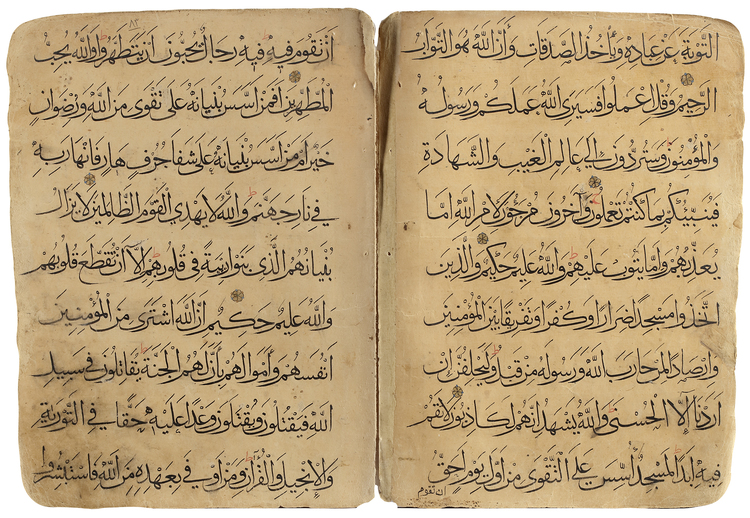 التوبة عن عباده ويأخذ الصدقات وأن الله هو التواب
الرحيم وقل اعملوا فسيرى الله عملكم ورسوله
والمؤمنون وستردون إلى عالم الغيب والشهادة
فينبئكم بما كنتم تعملون وآخرون مرجون لأمر الله إما
يعذبهم وإما يتوب عليهم والله عليم حكيم والذين
اتخذوا مسجدا ضرارا وكفرا وتفريقا بين المؤمنين
وإرصادا لمن حارب الله ورسوله من قبل وليحلفن إن
أردنا إلا الحسنى والله يشهد إنهم لكاذبون لا تقم
فيه أبدا لمسجد أسس على التقوى من أول يوم أحق
أن تقوم
أن تقوم فيه فيه رجال يحبون أن يتطهروا والله يحب
المطهرين أفمن أسس بنيانه على تقوى من الله ورضوان
خير أم من أسس بنيانه على شفا جرف هار فانهار به
في نار جهنم والله لا يهدي القوم الظالمين لا يزال
بنيانهم الذي بنوا ريبة في قلوبهم إلا أن تقطع قلوبهم
والله عليم حكيم إن الله اشترى من المؤمنين
أنفسهم وأموالهم بأن لهم الجنة يقاتلون في سبيل
الله فيقتلون ويقتلون وعدا عليه حقا في التورية
والإنجيل والقرآن ومن أوفى بعهده من الله فاستبشروا